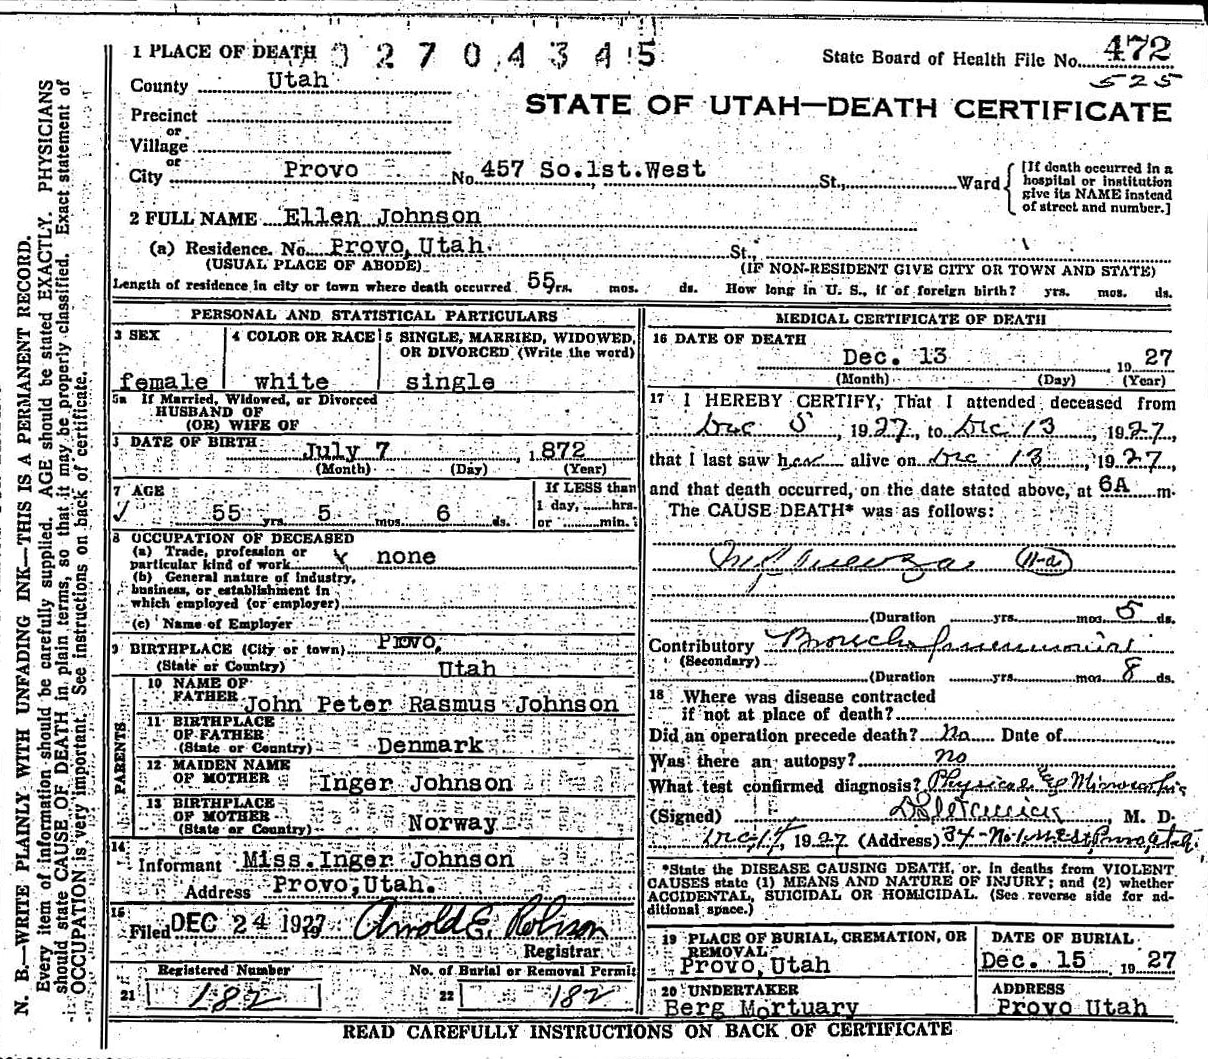 N. B.—WRITE PLAINLY WITH UNFADING INK—THIS IS A PERMANENT RECORD.
Every item of information should be carefully supplied. AGE should be stated EXACTLY. PHYSICIANS
should state CAUSE OF DEATH in plain terms, so that it may be properly classified. Exact statement of
OCCUPATION is very important. See instructions on back of certificate.
1 PLACE OF DEATH 0 2 7 0 4 3 4 5
State Board of Health File No. 472
525
County Utah
STATE OF UTAH—DEATH CERTIFICATE
Precinct
or
Village
or
City Provo No. 457 So.1st.West St., Ward
[If death occurred in a
hospital or institution
give its NAME instead
of street and number.]
2 FULL NAME Ellen Johnson
(a) Residence. No. Provo, Utah. St.,
(USUAL PLACE OF ABODE) (IF NON-RESIDENT GIVE CITY OR TOWN AND STATE)
Length of residence in city or town where death occurred 55 yrs. mos. ds. How long in U. S., if of foreign birth? yrs. mos. ds.
PERSONAL AND STATISTICAL PARTICULARS
3 SEX
female
4 COLOR OR RACE
white
5 SINGLE, MARRIED, WIDOWED,
OR DIVORCED (Write the word)
single
5a If Married, Widowed, or Divorced
HUSBAND OF
(OR) WIFE OF
DATE OF BIRTH July 7, 1872
(Month) (Day) (Year)
7 AGE
55 yrs. 5 mos. 6 ds.
If LESS than
1 day, hrs.
or min.
8 OCCUPATION OF DECEASED
(a) Trade, profession or
particular kind of work none
(b) General nature of industry,
business, or establishment in
which employed (or employer)
(c) Name of Employer
9 BIRTHPLACE (City or town) Provo,
(State or Country) Utah
PARENTS
10 NAME OF
FATHER John Peter Rasmus Johnson
11 BIRTHPLACE
OF FATHER
(State or Country) Denmark
12 MAIDEN NAME
OF MOTHER Inger Johnson
13 BIRTHPLACE
OF MOTHER
(State or Country) Norway
14
Informant Miss.Inger Johnson
Address Provo, Utah.
15
Filed DEC 24 1927 Arnold E. Robison
Registrar
Registered Number
21 182
No. of Burial or Removal Permit
22 182
MEDICAL CERTIFICATE OF DEATH
16 DATE OF DEATH
Dec. 13 1927
(Month) (Day) (Year)
17 I HEREBY CERTIFY, That I attended deceased from
Dec 5, 1927, to Dec 13, 1927,
that I last saw her alive on Dec 13, 1927,
and that death occurred, on the date stated above, at 6A m.
The CAUSE DEATH* was as follows:
Influenza 11-a
(Duration yrs. mos. 5 ds.
Contributory Broncho pneumonia
(Secondary)
(Duration yrs. mos. 8 ds.
18 Where was disease contracted
if not at place of death?
Did an operation precede death? No Date of
Was there an autopsy? no
What test confirmed diagnosis? Physical &
(Signed) , M. D.
Dec 14, 1927 (Address) 34-No 1 West Provo, Utah.
*State the DISEASE CAUSING DEATH, or, in deaths from VIOLENT
CAUSES state (1) MEANS AND NATURE OF INJURY; and (2) whether
ACCIDENTAL, SUICIDAL OR HOMICIDAL. (See reverse side for ad-
ditional space.)
19 PLACE OF BURIAL, CREMATION, OR
REMOVAL
Provo, Utah
DATE OF BURIAL
Dec. 15, 1927
20 UNDERTAKER
Berg Mortuary
ADDRESS
Provo Utah
READ CAREFULLY INSTRUCTIONS ON BACK OF CERTIFICATE